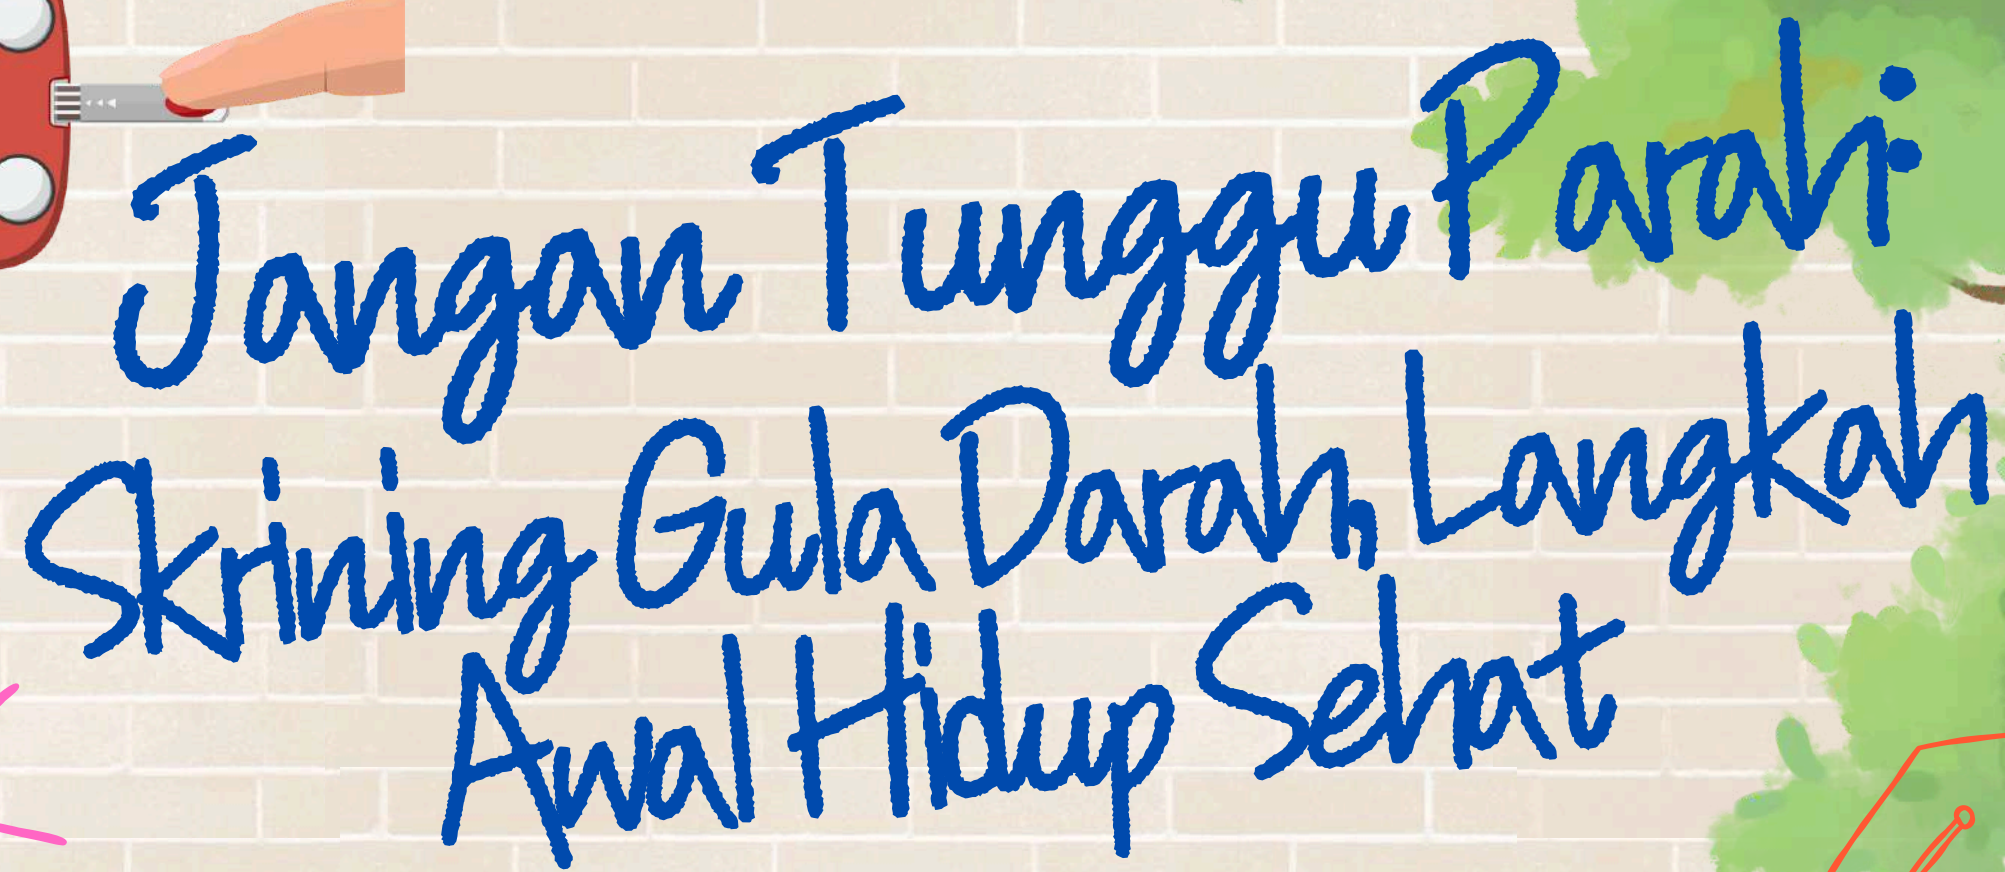 Jangan Tunggu Parah:
Skrining Gula Darah, Langkah
Awal Hidup Sehat